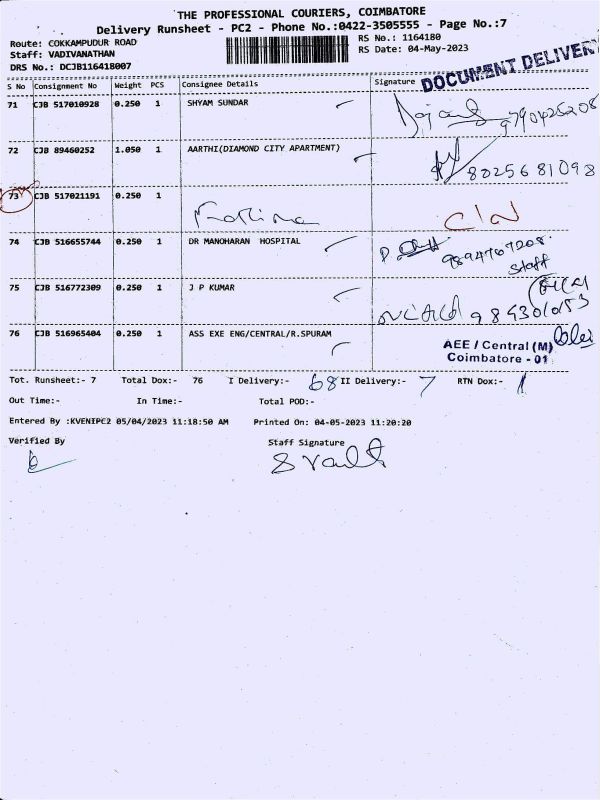 THE PROFESSIONAL COURIERS, COIMBATORE
Delivery Runsheet - PC2 - Phone No.:0422-3505555 - Page No.:7
Route: COKKAMPUDUR ROAD
Staff: VADIVANATHAN
DRS No.: DCJB1164180007
RS No.: 1164180
RS Date: 04-May-2023
DOCUMENT DELIVERY
S No Consignment No Weight PCS Consignee Details Signature
71 CJB 517010928 0.250 1 SHYAM SUNDAR 9790425208
72 CJB 89460252 1.050 1 AARTHI(DIAMOND CITY APARTMENT) 8025681098
73 CJB 517021191 0.250 1
74 CJB 516655744 0.250 1 DR MANOHARAN HOSPITAL 9894707208 Staff
75 CJB 516772309 0.250 1 J P KUMAR
76 CJB 516965404 0.250 1 ASS EXE ENG/CENTRAL/R.SPURAM
AEE / Central (M)
Coimbatore - 01
Tot. Runsheet:- 7 Total Dox:- 76 I Delivery:- 68 II Delivery:- 7 RTN Dox:- 1
Out Time:- In Time:- Total POD:-
Entered By :KVENIPC2 05/04/2023 11:18:50 AM Printed On: 04-05-2023 11:20:20
Verified By Staff Signature